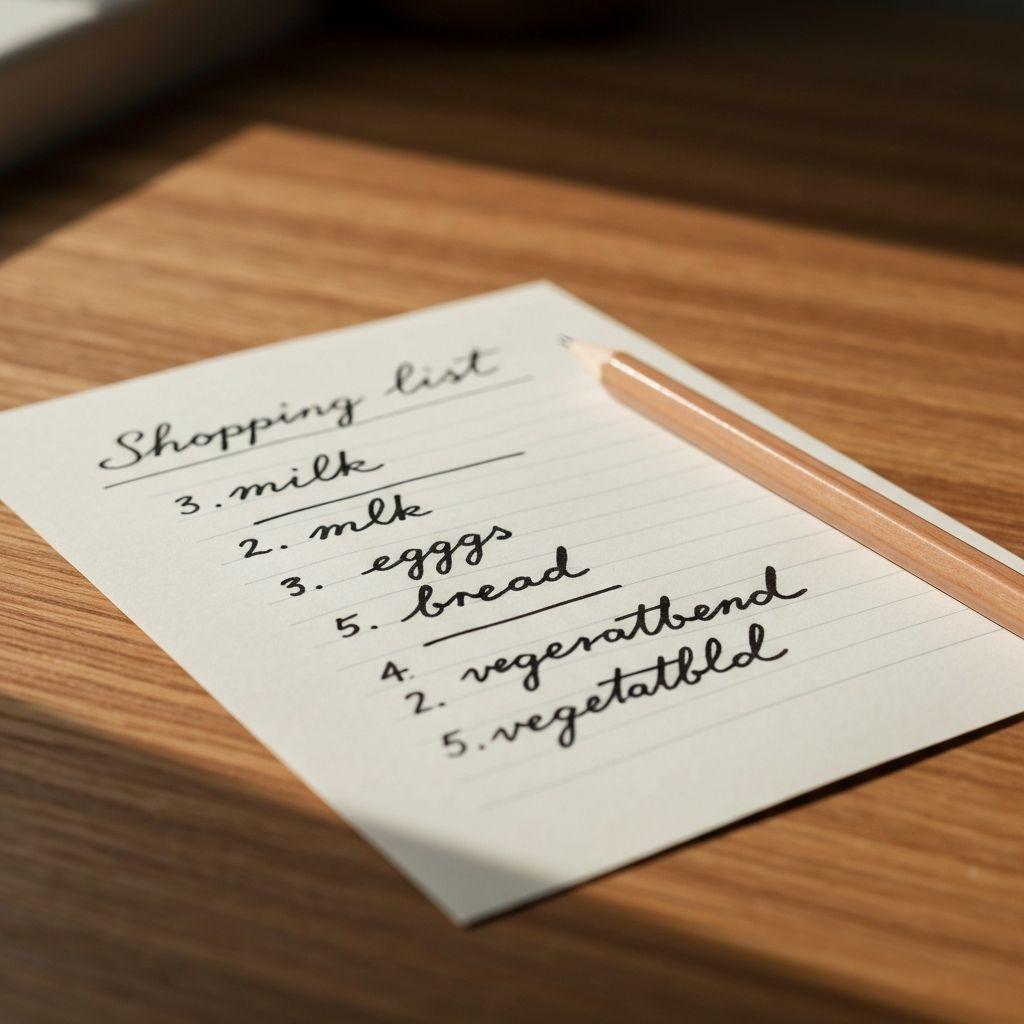 Shopping list
3. milk
2. mlk
3. egggs
5. bread
4.
2. vegeratbend
5. vegetatbld